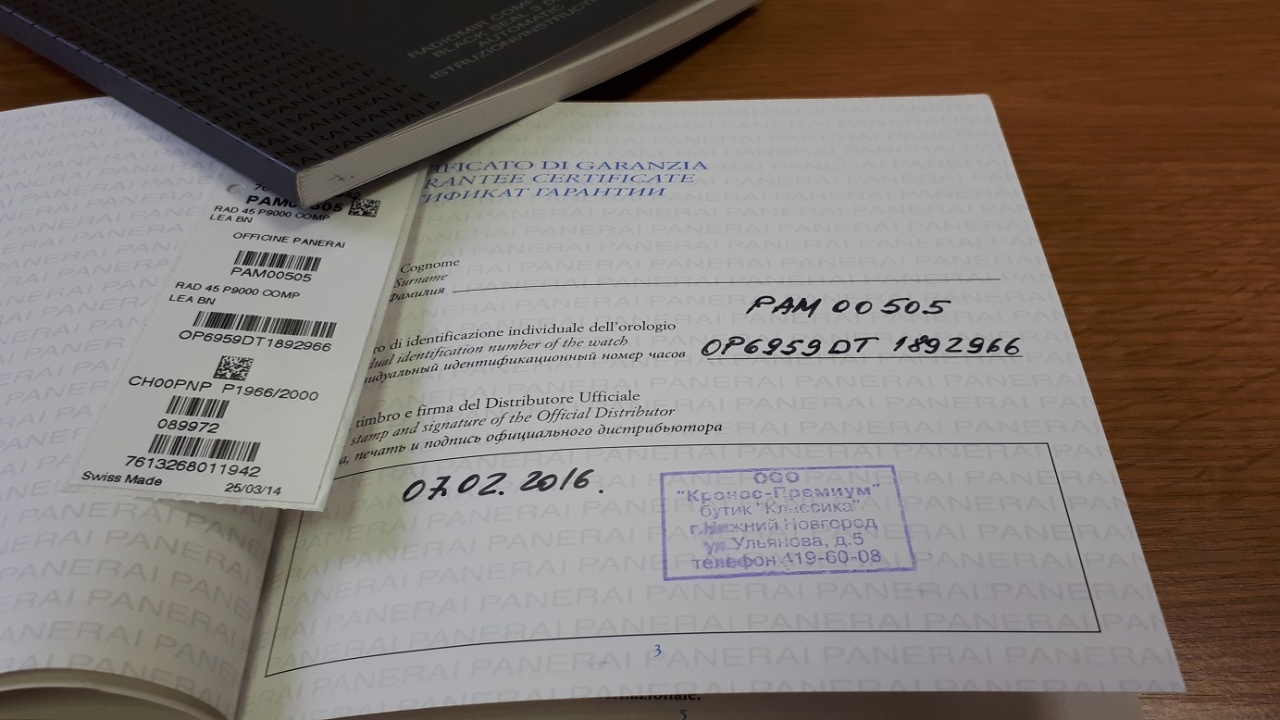 RADIOMIR
BLACK SEAL 3 D
AUTOMATIC
PAM00505
RAD 45 P9000 COMP
LEA BN
OFFICINE PANERAI
PAM00505
RAD 45 P9000 COMP
LEA BN
OP6959DT1892966
CH00PNP P1966/2000
089972
7613268011942
Swiss Made 25/03/14
IFICATO DI GARANZIA
RANTEE CERTIFICATE
ТИФИКАТ ГАРАНТИИ
Cognome
Surname
Фамилия
PAM 00505
ro di identificazione individuale dell'orologio
dual identification number of the watch
видуальный идентификационный номер часов OP6959DT 1892966
timbro e firma del Distributore Ufficiale
stamp and signature of the Official Distributor
а, печать и подпись официального дистрибьютора
07.02.2016.
ООО
"Кронос-Премиум"
бутик "Классика"
г.Нижний Новгород
ул.Ульянова, д.5
телефон 419-60-08
3
5